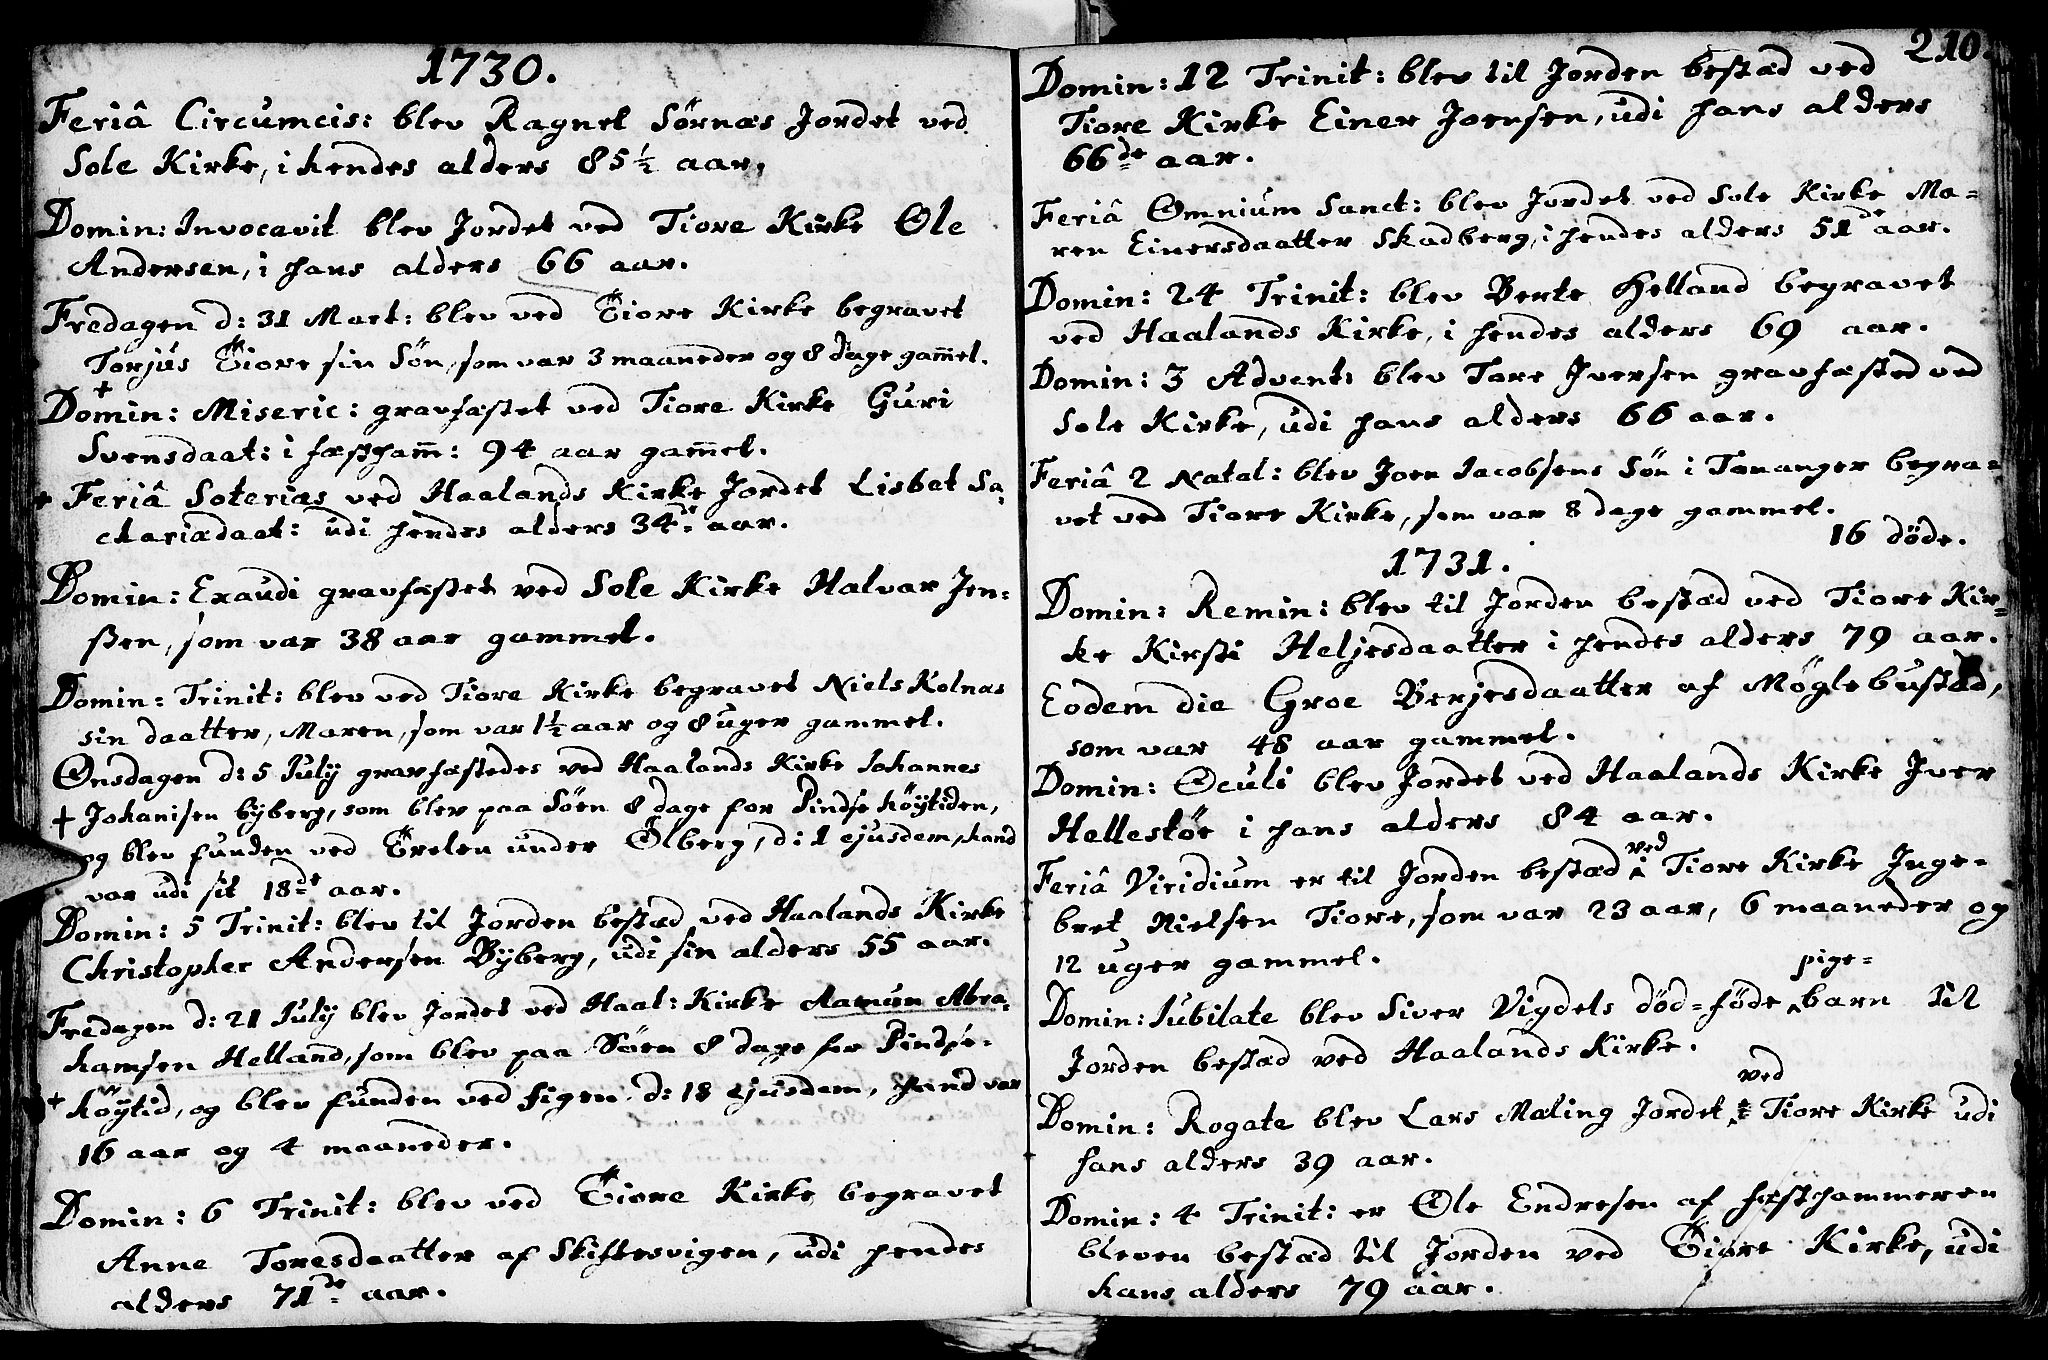 1730.
Feriâ Circumcis: blev Ragnel Sørnæs Jordet ved
Sole Kirke, i hendes alders 85½ aar.
Domin: Invocavit blev Jordet ved Tiore Kirke Ole
Andersen, i hans alders 66 aar.
Fredagen d: 31 Mart: blev ved Tiore Kirke begravet
Torjus Tiore sin Sön, som var 3 maaneder og 8 dage gam̄el.
+
Domin: Miseric: gravfæstet ved Tiore Kirke Guri
Svensdaat: i fæstham̄: 94 aar gam̄el.
+ Feriâ Soterias ved Haalands Kirke Jordet Lisbet Sa-
chariædaat: udi hendes alders 34de aar.
Domin: Exaudi gravfæstet ved Sole Kirke Halvar Jen-
ßen, som var 38 aar gammel.
Domin: Trinit: blev ved Tiore Kirke begravet Niels Kolnæs
sin daatter, Maren, som var 1½ aar og 8 uger gammel.
Onsdagen d: 5 Julÿ gravfæstedes ved Haalands Kirke Johannes
+ Johanisen Byberg, som blev paa Söen 8 dage for Pindse höÿtiden,
og blev funden ved Erelen under Ölberg, d: 1 ejusdem, hand
var udi sit 18de aar.
Domin: 5 Trinit: blev til Jorden bestæd ved Haalands Kirke
Christopher Andersen Bÿberg, udi sin alders 55 aar.
Fredagen d: 21 Julÿ blev Jordet ved Haal: Kirke Aamun Abra-
hamsen Helland, som blev paa Söen 8 dage for Pindse-
+ höÿtid, og blev funden ved figen d: 18 ejusdem, hand var
16 aar og 4 maaneder.
Domin: 6 Trinit: blev ved Tiore Kirke begravet
Anne Toresdaatter af Skiftesvigen, udi hendes
alders 71de aar.
210.
Domin: 12 Trinit: blev til Jorden bestæd ved
Tiore Kirke Einer Joensen, udi hans alders
66de aar.
Feriâ Omnium Sanct: blev Jordet ved Sole Kirke Ma-
ren Einersdaatter Skadberg, i hendes alders 51de aar.
Domin: 24 Trinit: blev Berte Helland begravet
ved Haalands Kirke, i hendes alders 69 aar.
Domin: 3 Advent: blev Tore Iversen gravfæsted ved
Sole Kirke, udi hans alders 66 aar.
Feriâ 2 Natal: blev Joen Jacobsens Sön i Tananger begra-
vet ved Tiore Kirke, som var 8 dage gammel.
16 döde.
1731.
Domin: Remin: blev til Jorden bestæd ved Tiore Kir-
ke Kirsti Heljesdaatter i hendes alders 79 aar.
Eodem die Groe Berjesdaatter af Möglebustæd,
som var 48 aar gammel.
Domin: Oculi blev Jordet ved Haalands Kirke Iver
Hellestöe i hans alders 84 aar.
Feriâ Viridium er til Jorden bestæd ved Tiore Kirke Inge-
bret Nielsen Tiore, som var 23 aar, 6 maaneder og
12 uger gammel.
Domin: Jubilate blev Siver Vigdels död-föde pige-barn til
Jorden bestæd ved Haalands Kirke.
Domin: Rogate blev Lars Maling Jordet ved Tiore Kirke udi
hans alders 39 aar.
Domin: 4 Trinit: er Ole Endresen af fæsthammeren
bleven bestæd til Jorden ved Tiore Kirke, udi
hans alders 79 aar.